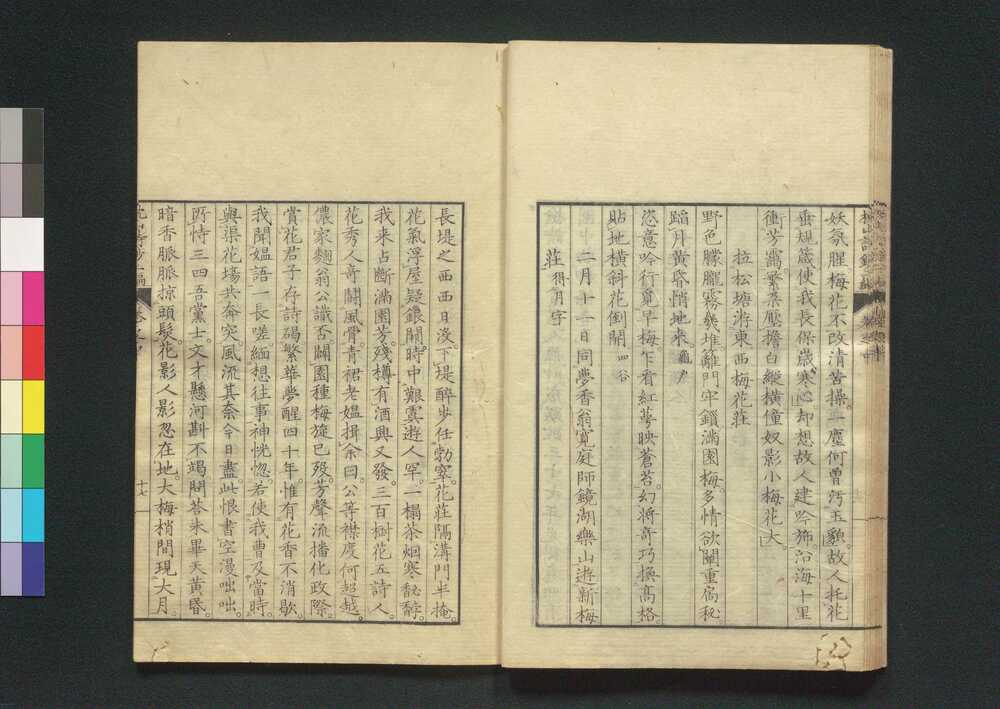 妖氛腥梅花不改清苦操一塵何曽汚玉貌故人托花
垂規箴使我長保歳寒心却想故人建吟斾沿海十里
衝芳靄繁蘂壓擔白縱橫僮奴影小梅花大
拉松塘游東西梅花莊
野色朦朧霧幾堆籬門牢鎖滿園梅多情欲闖重扃秘
蹈月黃昏悄地來
恣意吟行覓早梅乍看紅萼映蒼苔幻將奇巧換高格
貼地橫斜花倒開
二月十一日同夢香翁寬庭師鏡湖樂山遊新梅
莊得月字
長堤之西西日沒下堤醉步任勃窣花莊隔溝門半掩
花氣浮屋疑銀闕時中艱虞遊人罕一榻茶烟寒馝馞
我来占斷滿園芳殘樽有酒興又發三百樹花五詩人
花秀人奇鬪風骨青裙老媼揖余曰公等襟度何超越
儂家翁公識否闢園種梅旋已歿芳聲流播化政際
賞花君子存詩碣繁華夢醒四十年惟有花香不消歇
我聞媼語一長嗟緬想往事神恍惚若使我曹及當時
與渠花場共奔突風流其奈今日盡此恨書空漫咄咄
所恃三四吾黨士文才懸河斟不竭問答未畢天黃昏
暗香脈脈掠頭髮花影人影忽在地大梅梢間現大月
十七